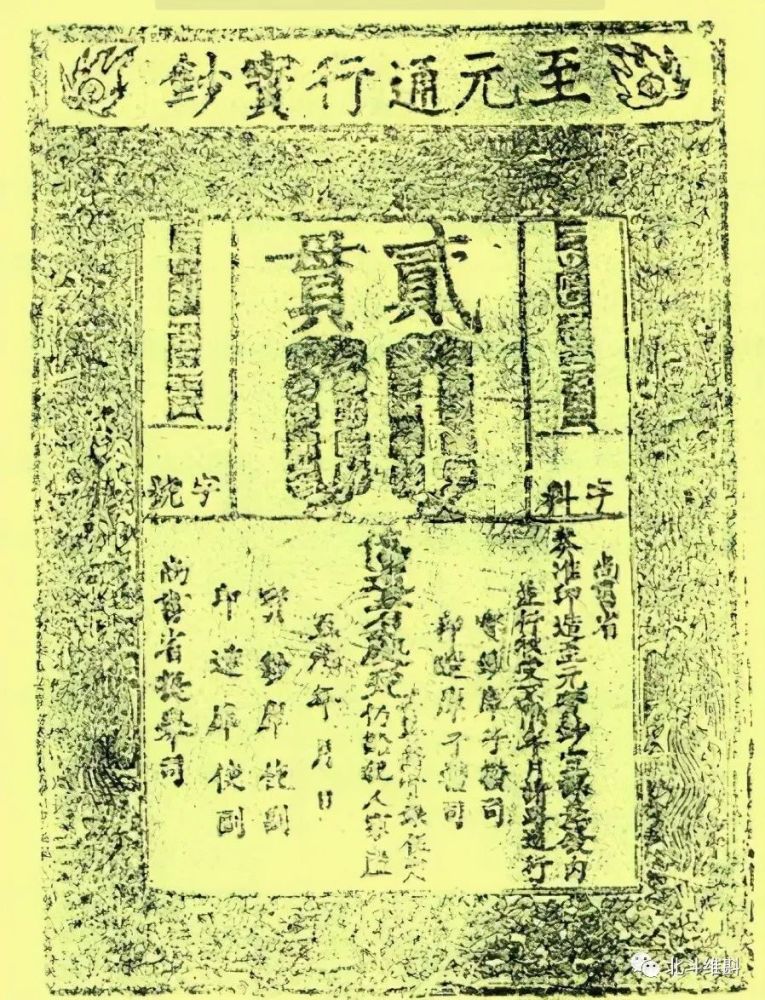 至元通行寶鈔
貳貫
字料
字號
尚書省
奏准印造至元寶鈔宣課差役內
並行收受不限年月諸路通行
寶鈔庫子攢司
印造庫子攢司
偽造者處死
首告者賞銀伍定
仍給犯人家產
至元年月日
寶鈔庫使副
印造庫使副
尚書省提舉司
北斗维斟